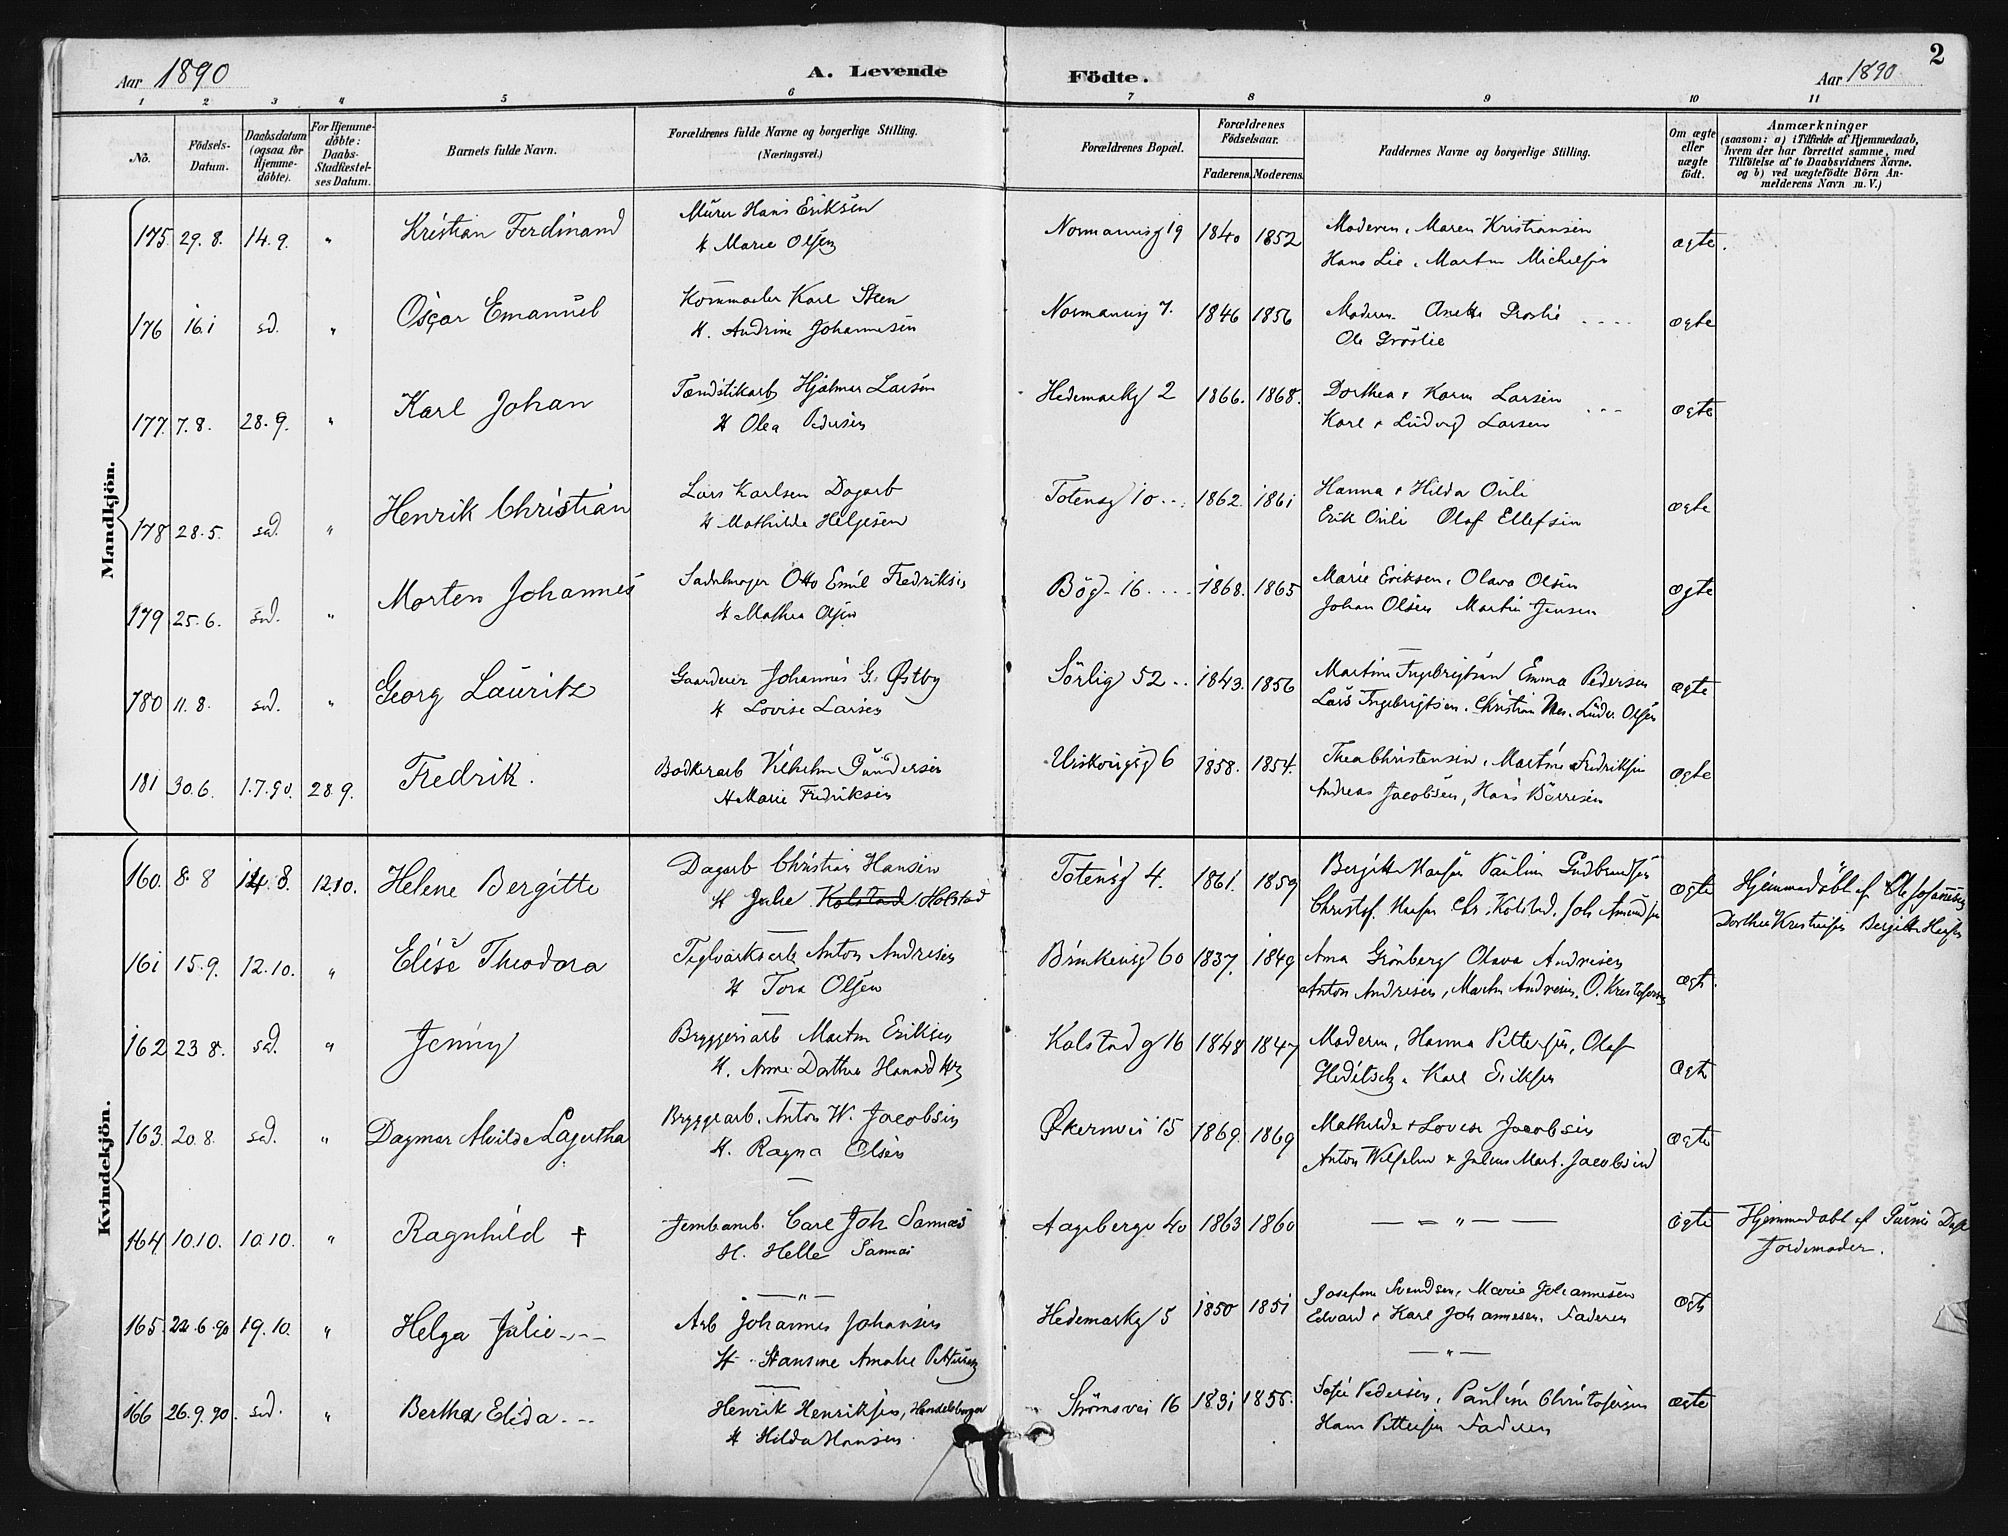 Aar 1890
A. Levende Födte.
Aar 1890
2
1 2 3 4 5 6 7 8 9 10 11
No.
Födsels-Datum.
Daabsdatum (ogsaa for Hjemme-döbte).
For Hjemme-döbte: Daabs-Stadfæstel-ses Datum.
Barnets fulde Navn.
Forældrenes fulde Navne og borgerlige Stilling. (Næringsvei.)
Forældrenes Bopæl.
Forældrenes Födselsaar.
Faderens. Moderens.
Faddernes Navne og borgerlige Stilling.
Om ægte eller uægte födt.
Anmærkninger
(saasom: a) i Tilfælde af Hjemmedaab, hvem der har forrettet samme, med Tilföielse af to Daabsvidners Navne. og b) ved uægtefödte Börn An-melderens Navn m. V.)
Mandkjön.
175. 29. 8. 14. 9. " Kristian Ferdinand Murer Hans Eriksen Normannsg 19 1840 1852 Moderen, Maren Kristiansen ægte.
H Marie Olsen Hans Lie, Martin Michelsen
176 16.1 sd. " Oscar Emanuel Karl Steen Normannsg 7. 1846 1856 Moderen Anette ægte
H. Andrine Johannesen Ole Gröslie
177. 7. 8. 28. 9. " Karl Johan Tændstikarb Hjalmar Larsen Hedemarkg 2 1866. 1868. Dorthea & Karen Larsen ægte
H Olea Pedersen Karl & Ludvig Larsen
178 28. 5. sd. " Henrik Christian Lars Karlsen Dagarb Totensg 10 1862. 1861 Hanna & Hilda ægte
H Mathilde Helgesen Erik Olaf Ellefsen
179 25. 6. sd. " Morten Johannes Sadelmager Otto Emil Fredriksen Bögd 16 1868. 1865 Marie Eriksen, Olava Olsen ægte
H Mathea Olsen Johan Olsen Martin Jensen
180 11. 8. sd. " Georg Lauritz Gaardeier Johannes G. Østby Sörlig 52 1843. 1856 Martine Ingebrigtsen Emma Pedersen ægte
H Lovise Larsen Lars Ingebrigtsen. Christian Olsen
181 30. 6. 1. 7. 90. 28 9. Fredrik. Bödkerarb Vilhelm Gundersen 6 1858. 1854. Thea Christensen, Martine Fredriksen ægte
H Marie Fredriksen Andreas Jacobsen, Hans Börresen
Kvindekjön.
160. 8. 8 14. 8. 12.10. Helene Bergitte Dagarb Christian Hansen Totensg 4. 1861. 1859 Bergitte Hansen Pauline Gudbrandsen ægte Hjemmedöbt af Ole Johannesen
H Julie Kolstad Holstad Christof. Hansen Chr. Kolstad. Joh Amundsen Dorthea Kristensen Bergitte Hansen
161 15. 9. 12. 10. " Elise Theodora Teglværksarb Anton Andresen 60 1837. 1849 Ana Grönberg Olava Andresen ægt.
H Tora Olsen Anton Andresen, Martin Andresen, O. Kristofersen
162 23 8. sd. " Jenny Bryggeriarb Martin Eriksen Kolstad g 16 1848 1847 Moderen, Hanna Pettersen, Olaf ægte
H. Anne Dorthea Karl Eriksen
163. 20. 8. sd. " Dagmar Alvilde Lagertha Bryggerarb. Anton W. Jacobsen Økernvei 15 1869. 1869 Mathilde & Lovise Jacobsen ægte
H. Ragna Olsen Anton Vilhelm & Julius Mart. Jacobsen
164 10.10. 10.10. " Ragnhild † Jernbanb. Carl Joh Sannæs Aagebergv 40 1863 1860 — " — ægte Hjemmedöbt af
H. Helle Sannæs Jordemoder.
165. 22. 6. 90 19. 10. " Helga Julie Arb Johannes Johansen Hedemarkg 5 1850 1851 Josefine Svendsen, Marie Johannesen ægte
H. Hansine Amalie Pettersen Edvard & Karl Johannesen. Faderen
166 26. 9. 90. sd. " Bertha Elida Henrik Henriksen, Handelsborger Strömsvei 16 1831 1855. Sofie Pedersen, Pauline Christofersen ægte
H Hilda Hansen Hans Pettersen Faderen